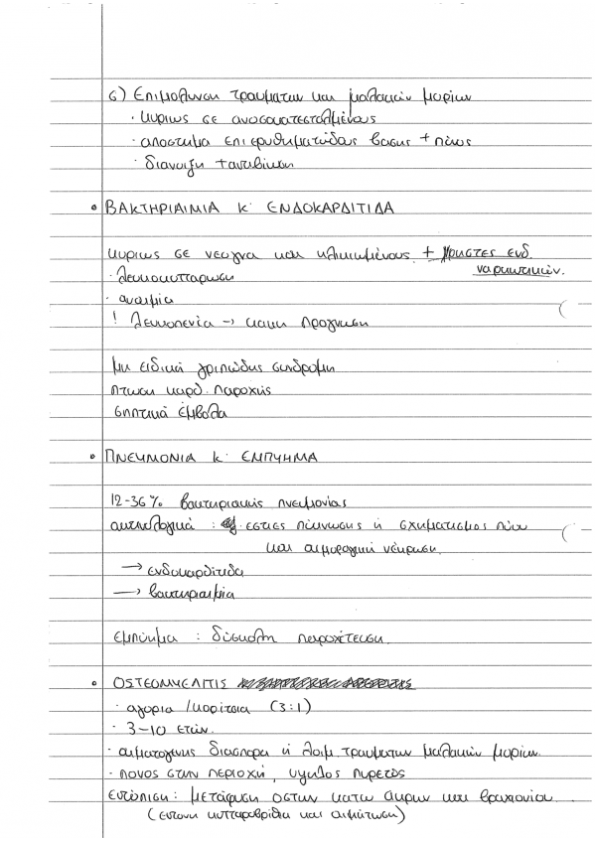 6) Επιμολυνση τραυματων και μαλακών μοριων
· κυριως σε ανοσοκατεσταλμένους
· αποστημα επι ερυθηματώδους βασης + πύος
· διανοιξη + αντιβίωση
• ΒΑΚΤΗΡΙΑΙΜΙΑ Κ' ΕΝΔΟΚΑΡΔΙΤΙΔΑ
κυριως σε νεογνα και ηλικιωμένους + χρηστες ενδ.
ναρκωτικών.
· λευκοκυτταρωση
· αναιμία
! λευκοπενία → κακη προγνωση
Μη ειδικά γριπώδης συνδρομη
πτωση καρδ. παροχής
σηπτικά έμβολα
• ΠΝΕΥΜΟΝΙΑ Κ' ΕΜΠΥΗΜΑ
12-36% βακτηριακής πνευμονίας
ακτινολογικά : εστιες πύκνωσης ή σχηματισμος πύου
και αιμοραγική νέκρωση.
→ ενδοκαρδίτιδα
→ βακτηριαιμία
Εμπύημα : δύσκολη παροχέτευση.
• ΟΣΤΕΟΜΥΕΛΙΤΙΣ
· αγορια / κορίτσια (3:1)
· 3-10 ετών.
· αιματογενης διασπορα ή λοιμ. τραυματων μαλακών μορίων.
· πονος στην περιοχή, υψηλος πυρετός
Εντόπιση : μετάφυση οστων κατω ακρων και βραχιονίου.
(εντονη κυτταροβρίθεια και αιμάτωση)